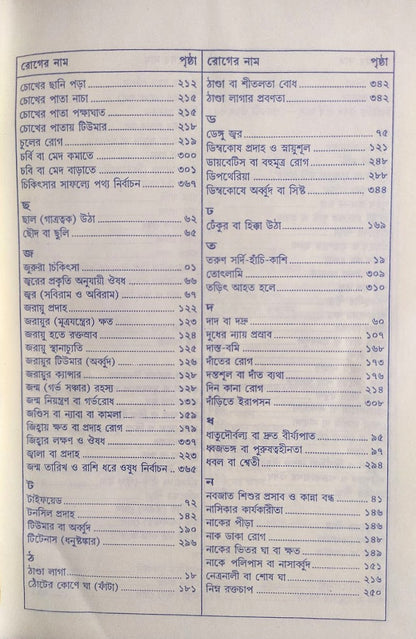 রোগের নাম পৃষ্ঠা
চোখের ছানি পড়া ২১২
চোখের পাতা নাচা ২১৫
চোখের পাতা পক্ষাঘাত ২১৫
চোখের পাতায় টিউমার ২১৮
চুলের রোগ ২১৯
চর্বি বা মেদ কমাতে ৩০০
চর্বি বা মেদ বাড়াতে ৩০১
চিকিৎসার সাফল্যে পথ্য নির্বাচন ৩৬৭
ছ
ছাল (গাত্রত্বক) উঠা ৬২
ছৌদ বা ছুলি ৬৫
জ
জরুরী চিকিৎসা ০১
জ্বরের প্রকৃতি অনুযায়ী ঔষধ ৬৬
জ্বর (সবিরাম ও অবিরাম) ৬৭
জরায়ু প্রদাহ ১২২
জরায়ুর (মূত্রযন্ত্রের) ক্ষত ১২৩
জরায়ু হতে রক্তস্রাব ১২৪
জরায়ু স্থানচ্যুতি ১২৫
জরায়ুর টিউমার (অর্ব্বুদ) ১২৬
জরায়ুর ক্যান্সার ১২৮
জন্ম (গর্ভ সঞ্চার) রহস্য ১২৮
জন্ম নিয়ন্ত্রণ বা গর্ভরোধ ১৩১
জণ্ডিস বা ন্যাবা বা কামলা ১৫৯
জিহ্বায় ক্ষত বা প্রদাহ রোগ ১৭৯
জিহ্বার লক্ষণ ও ঔষধ ৩৩৭
জ্বালা বা প্রদাহ ২২৩
জন্ম তারিখ ও রাশি ধরে ওষুধ নির্বাচন ৩৬৫
ট
টাইফয়েড ৭২
টনসিল প্রদাহ ১৪২
টিউমার বা অর্ব্বুদ ১৯০
টিটেনাস (ধনুষ্টঙ্কার) ২৯৬
ঠ
ঠাণ্ডা লাগা ১৮
ঠোঁটের কোণে ঘা (ফাঁটা) ১৮১
রোগের নাম পৃষ্ঠা
ঠাণ্ডা বা শীতলতা বোধ ৩৪২
ঠাণ্ডা লাগার প্রবণতা ৩৪২
ড
ডেঙ্গু জ্বর ৭৫
ডিম্বকোষ প্রদাহ ও স্নায়ুশূল ১২১
ডায়বেটিস বা বহুমূত্র রোগ ২৪৮
ডিপথেরিয়া ২৮৮
ডিম্বকোষে অর্ব্বুদ বা সিষ্ট ৩৪৪
ঢ
ঢেঁকুর বা হিক্কা উঠা ১৬৯
ত
তরুণ সর্দি-হাঁচি-কাশি ১৯
তোৎলামি ৩০৯
তড়িৎ আহত হলে ৩১০
দ
দাদ বা দদ্রু ৬০
দুধের ন্যায় প্রস্রাব ১০৭
দাস্ত-বমি ১৬৮
দাঁতের রোগ ১৭৩
দন্তশূল বা দাঁত ব্যথা ১৭৬
দিন কানা রোগ ২১৪
দাঁড়িতে ইরাপসন ৩০৮
ধ
ধাতুদৌর্বল্য বা দ্রুত বীর্য্যপাত ৯৫
ধ্বজভঙ্গ বা পুরুষত্বহীনতা ৯৭
ধবল বা শ্বেতী ২৯৪
ন
নবজাত শিশুর প্রসাব ও কান্না বন্ধ ৪১
নাসিকার কার্যকারীতা ১৪৬
নাকের পীড়া ১৪৬
নাক ডাকা রোগ ১৪৮
নাকের ভিতর ঘা বা ক্ষত ১৪৯
নাকে পলিপাস বা নাসার্ব্বুদ ১৫১
নেত্রনালী বা শোষ ঘা ২১৬
নিম্ন রক্তচাপ ২৫০